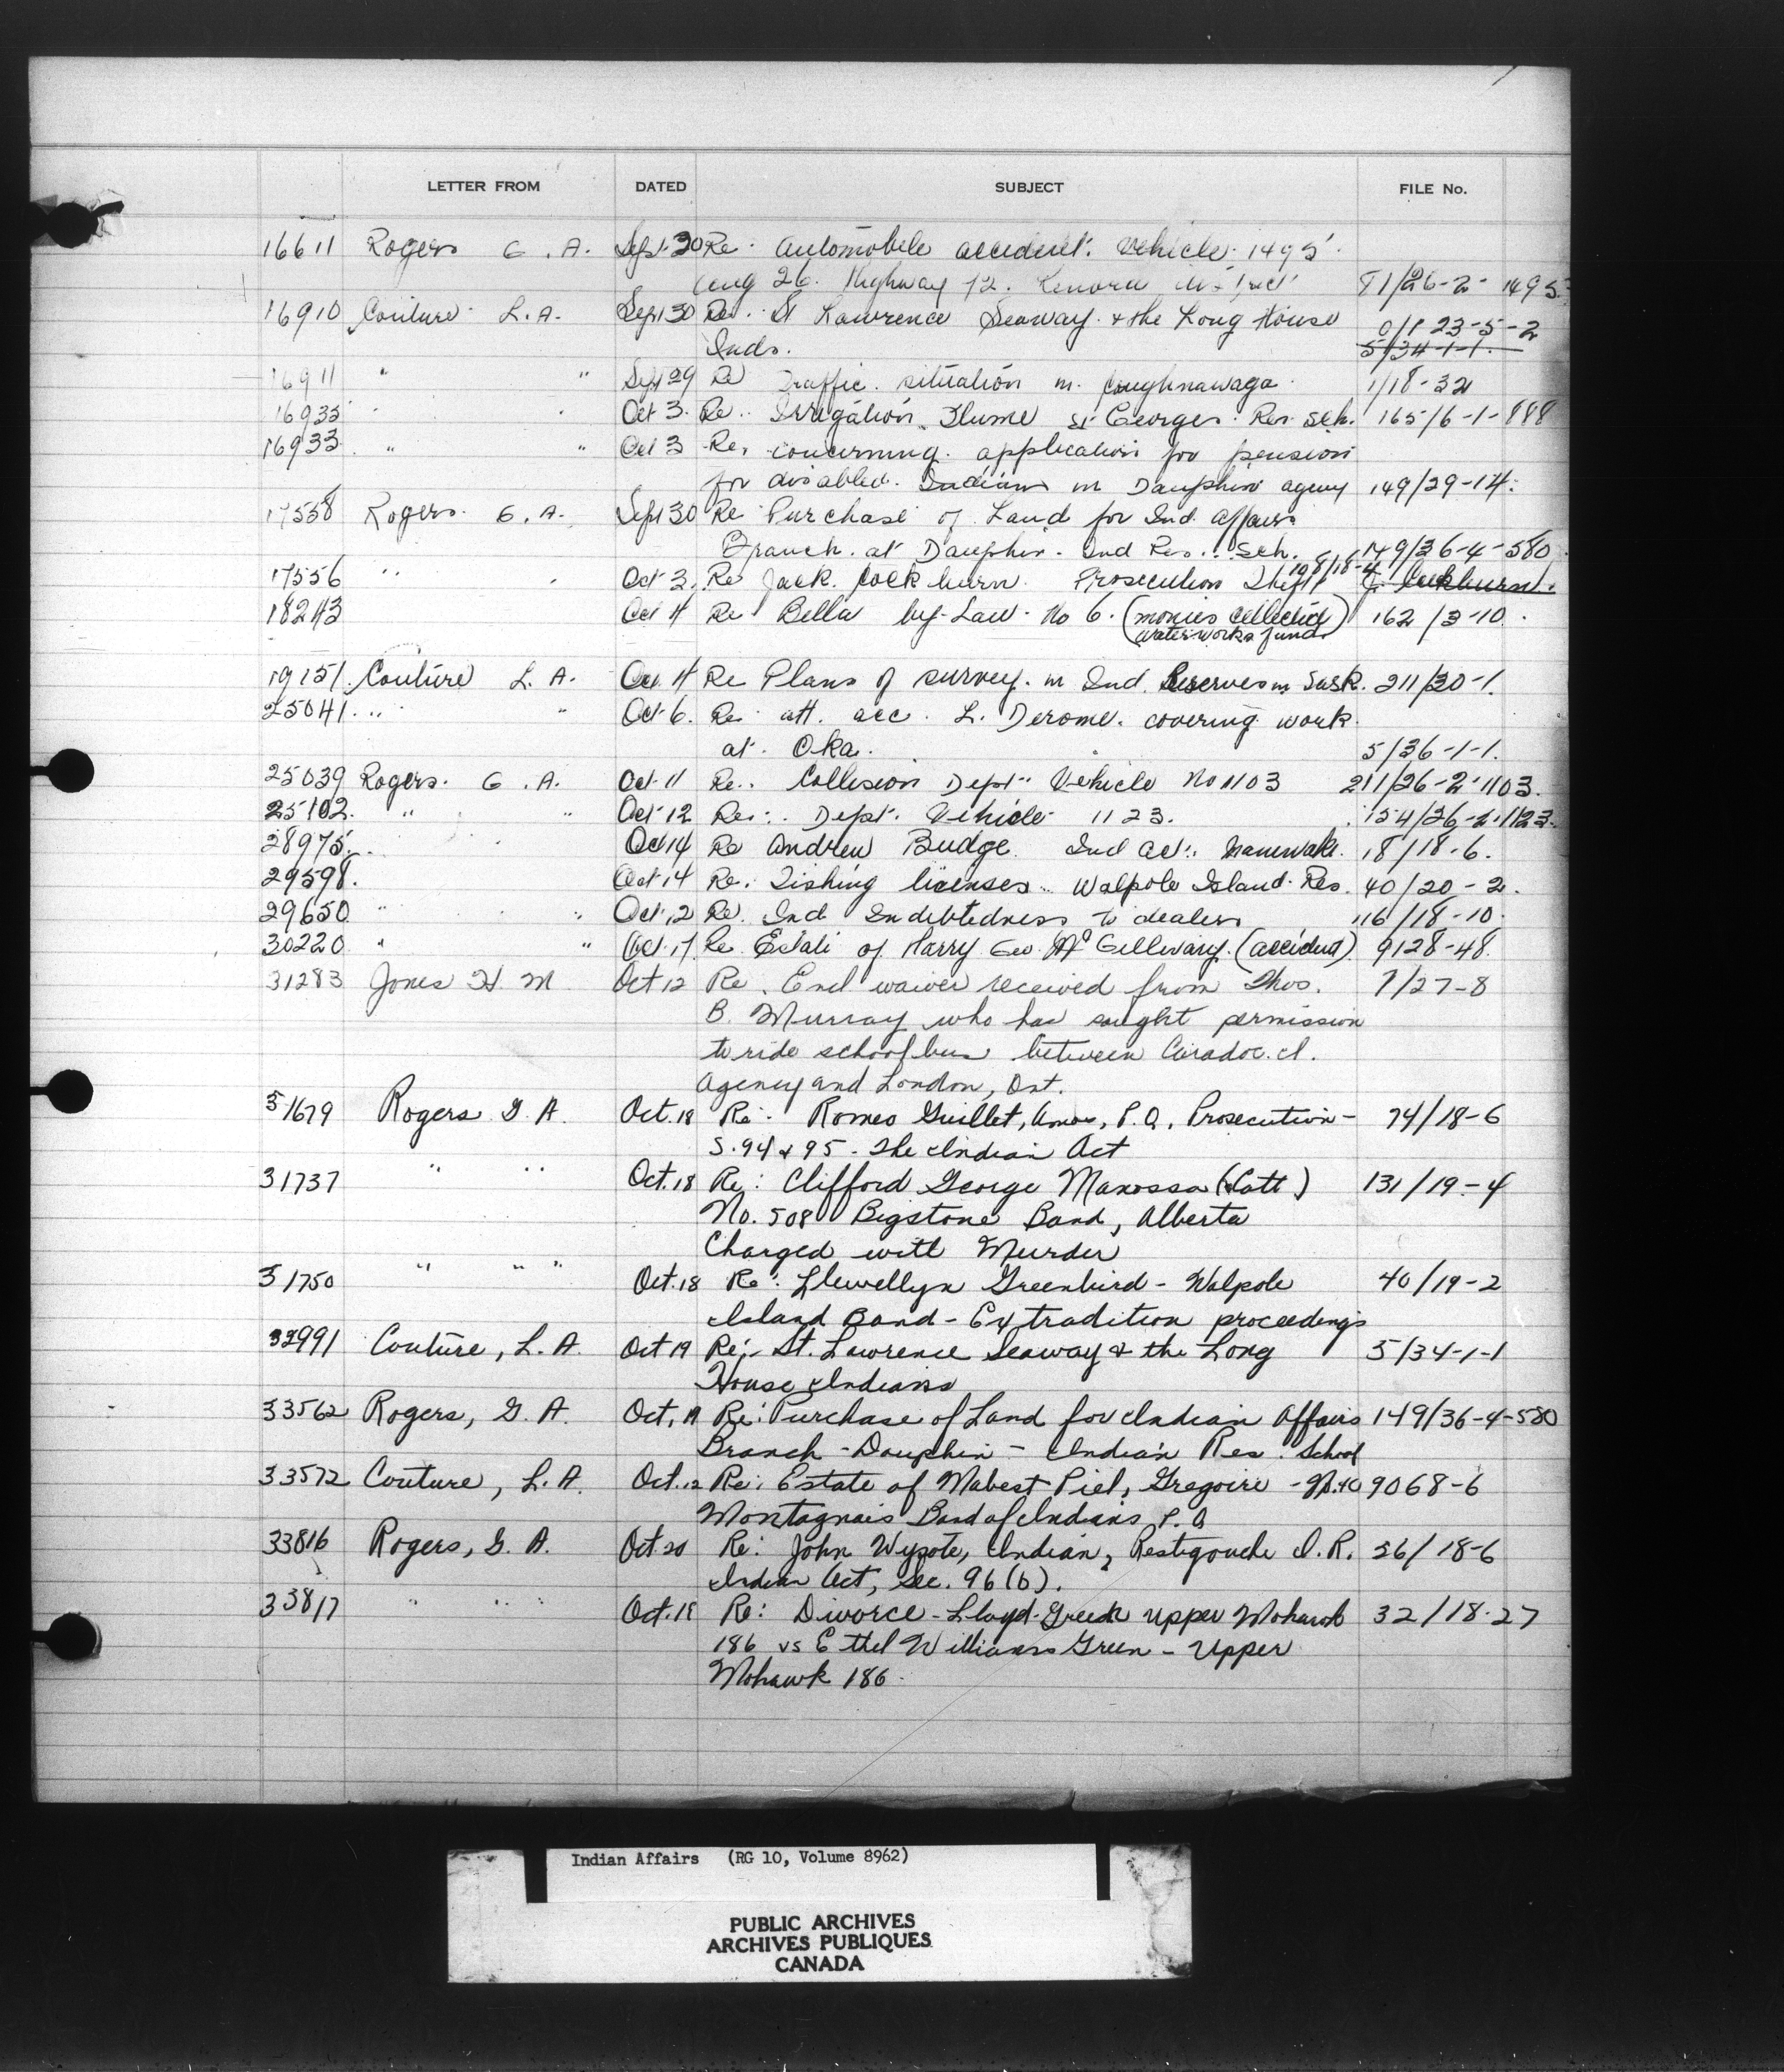 LETTER FROM DATED SUBJECT FILE No.
16611 Rogers G. A. Sept 30 Re. Automobile accident. Vehicle 1495
Aug 26. Highway 12. Kenora District 81/26-2-1495
16910 Couture L. A. Sept 30 Re. St Lawrence Seaway & the Long House 0/1 23-5-2
Inds. 5/34-1-1.
16911 " " Sept 29 Re Traffic situation in Caughnawaga. 1/18-32
16935 " " Oct 3. Re. Irrigation Flume St Georges Res. Sch. 165/6-1-888
16933 " " Oct 3 Re. concerning application for pension
for disabled Indians in Dauphin agency 149/29-14.
17558 Rogers. G. A. Sept 30 Re Purchase of Land for Ind. Affairs
Branch at Dauphin. Ind Res. Sch. 149/36-4-580
17556 " " Oct 3. Re Jack. Cockburn. Prosecution Theft 108/18-4 J. Cockburn.
18243 Oct 4 Re Bella by-Law No 6. (monies collecting 162/3-10.
waterworks funds)
19151. Couture L. A. Oct 4 Re Plans of survey in Ind. Reserves in Sask. 211/30-1.
25041. " " Oct 6. Re att. acc. L. Derome. covering work
at Oka. 5/36-1-1.
25039 Rogers. G. A. Oct 11 Re. Collision Dept. Vehicle No 1103 211/26-2-1103.
25102. " " Oct 12 Re. Dept. Vehicle 1123. 154/26-2-1123.
28975. " Oct 14 Re Andrew Budge. Ind Act. 18/18-6.
29598. Oct 14 Re. Fishing licenses. Walpole Island Res. 40/20-2.
29650 " " Oct 12 Re. Ind Indebtedness to dealers 116/18-10.
30220 " " Oct 17. Re Estate of Harry Geo. McGillivary. (accident) 9128-48.
31283 Jones H. M Oct 12 Re. Encl waiver received from Thos. 7/27-8
B. Murray who has sought permission
to ride school bus between Caradoc I.
Agency and London, Ont.
31679 Rogers G. A. Oct. 18 Re: Romeo Guillet, Amos, P.Q. Prosecution - 74/18-6
S. 94 & 95 - The Indian Act
31737 " " Oct. 18 Re: Clifford George Manossa (Catt) 131/19-4
No. 508 Bigstone Band, Alberta
Charged with Murder
31750 " " " Oct. 18 Re: Llewellyn Greenbird - Walpole 40/19-2
Island Band - Extradition proceedings
32991 Couture, L. A. Oct 19 Re:- St. Lawrence Seaway & the Long 5/34-1-1
House Indians
33562 Rogers, G. A. Oct. 19 Re: Purchase of Land for Indian Affairs 149/36-4-580
Branch - Dauphin - Indian Res. School
33572 Couture, L. A. Oct. 12 Re: Estate of Mabest Piel, Gregoire - No. 40 9068-6
Montagnais Band of Indians, P.Q
33816 Rogers, G. A. Oct 20 Re: John Wysote, Indian, Restigouche I. R. 56/18-6
Indian Act, Sec. 96(b).
33817 " " " Oct. 18 Re: Divorce - Lloyd Green Upper Mohawk 32/18-27
186 vs Ethel Williams Green - Upper
Mohawk 186.
Indian Affairs (RG 10, Volume 8962)
PUBLIC ARCHIVES
ARCHIVES PUBLIQUES
CANADA